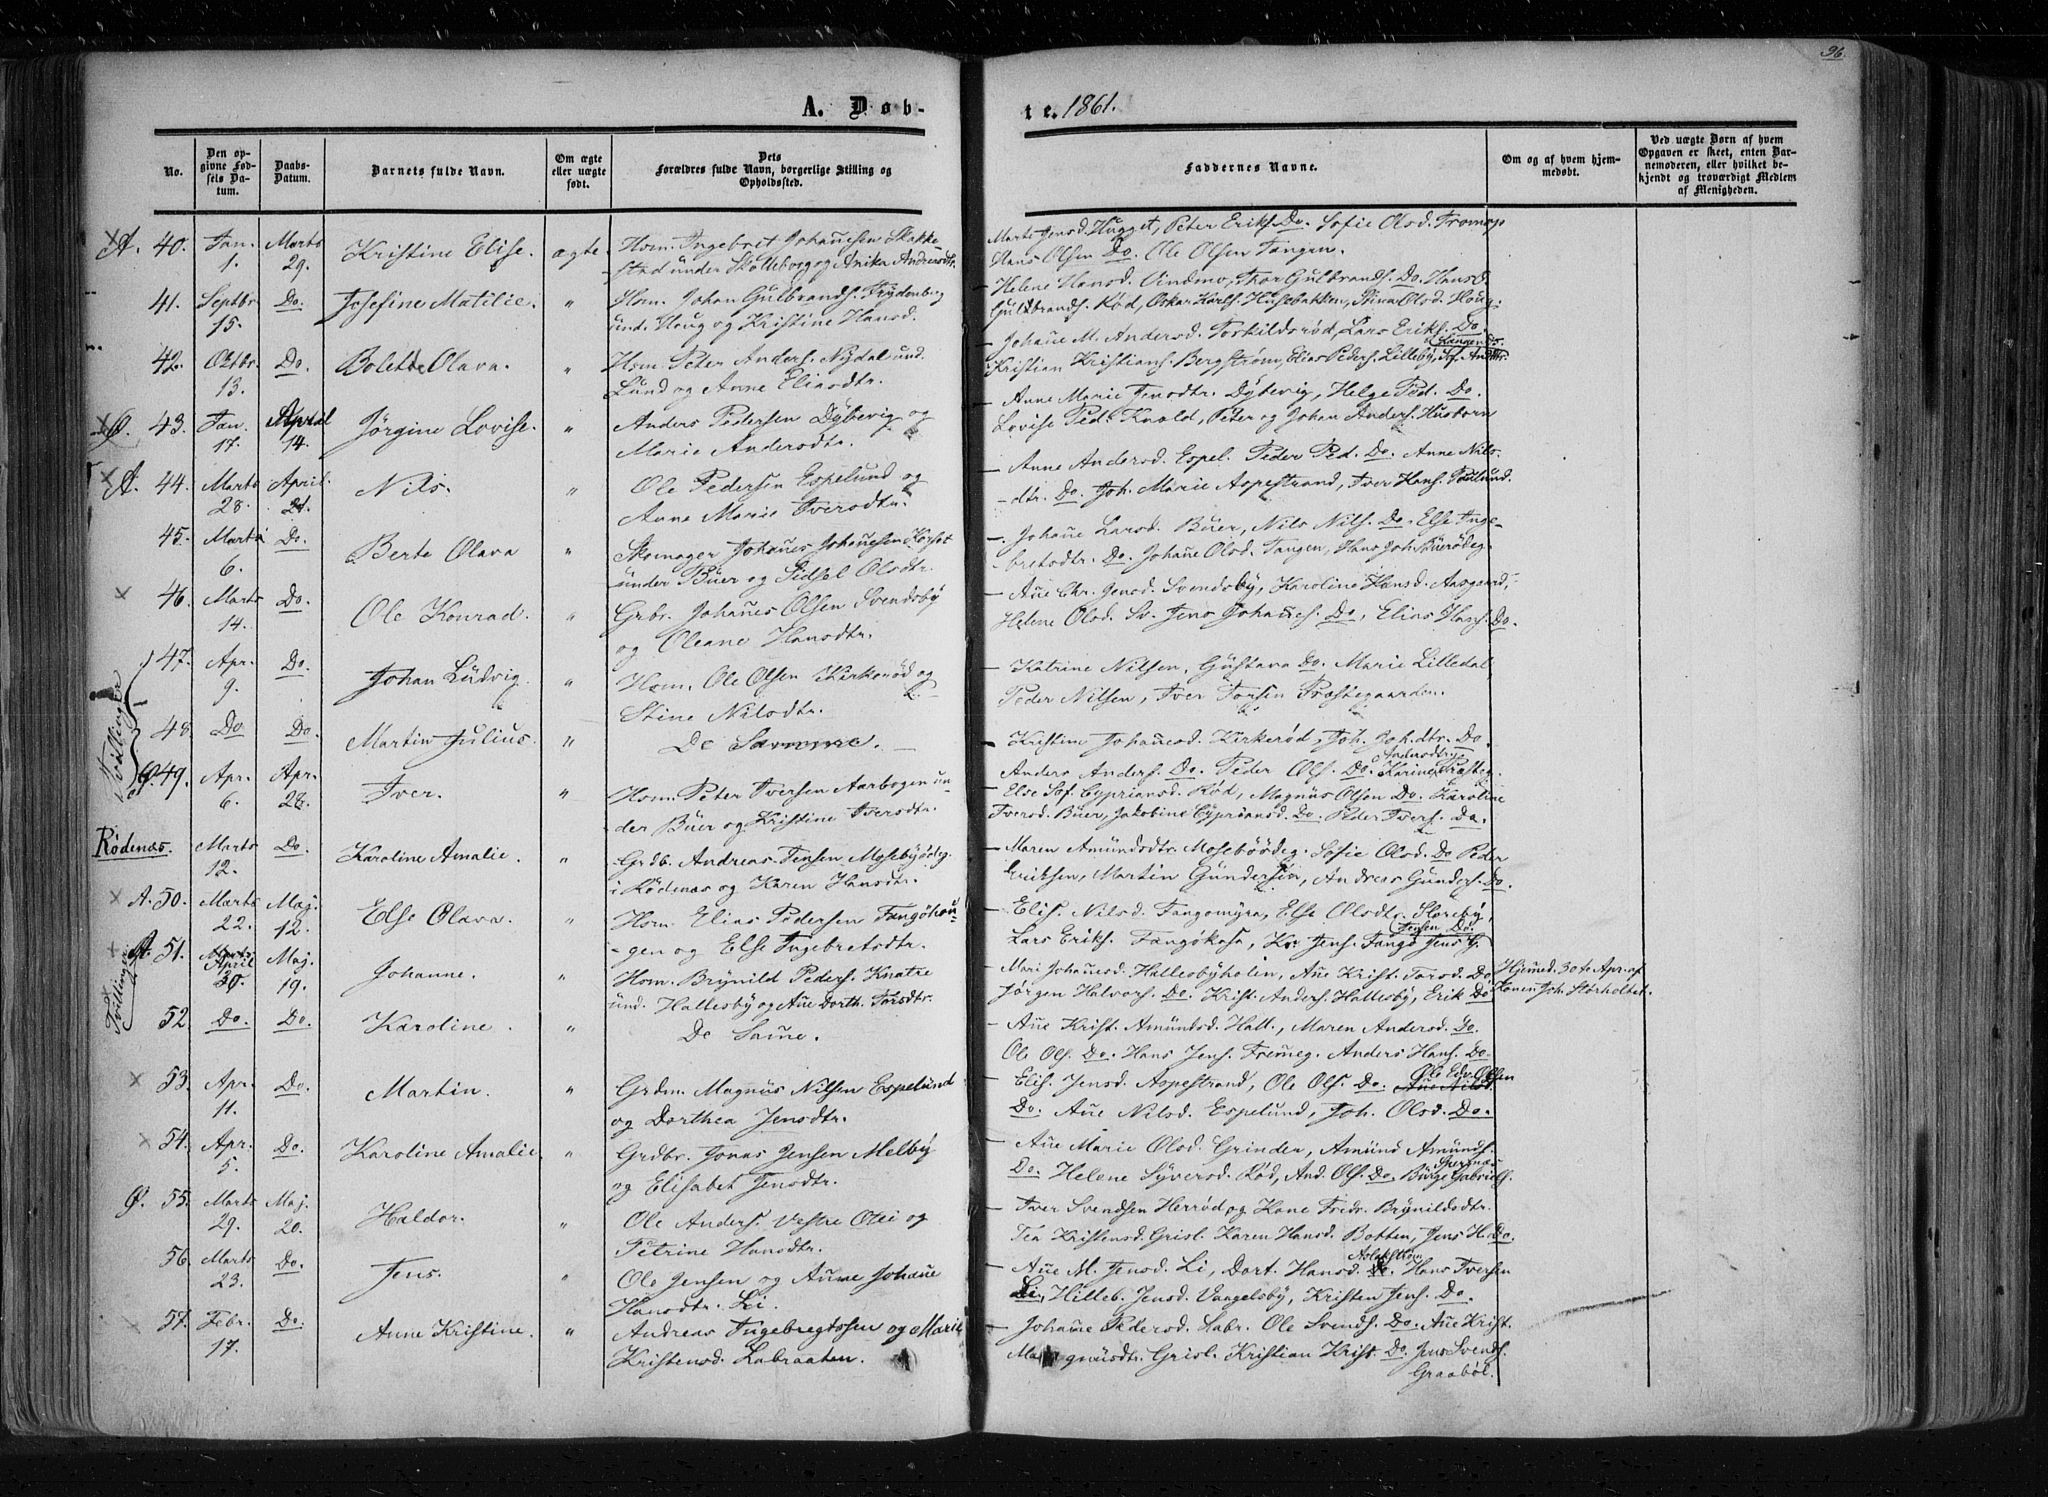 96.
A. Døb-
te. 1861.
No.
Den opgivne Fødsels Datum.
Daabs-Datum.
Barnets fulde Navn.
Om ægte eller uægte født.
Dets Forældres fulde Navn, borgerlige Stilling og Opholdssted.
Faddernes Navne.
Om og af hvem hjemmedøbt.
Ved uægte Børn af hvem Opgaven er skeet, enten Barnemoderen, eller hvilket bekjendt og troværdigt Medlem af Menigheden.
A. 40. Jan. 1. Marts 29. Kristine Elise. ægte. Hsm. Ingebret Johanesen Skakke-
stad under Skolleborg og Anika Andreasdtr.
Marte Jensd. Hugget, Peter Eriks. Do. Sofie Olsd. Tromop
Hans Olsen Do. Ole Olsen Tangen.
41. Septbr. 15. Do. Josefine Matilie. " Hsm. Johan Gulbrands. Frydenberg
und. Houg og Kristine Hansd.
Helene Hansd. Vindmo, Thor Gulbrands. Do. Hans
Gulbrands. Rød, Oskar Karls. Husebakken, Stina Olsd. Houg.
42. Oktbr. 13. Do. Bolette Olava. " Hsm. Peter Anders. Nydal und.
Lund og Anne Eliasdtr.
Johane M. Andersd. Toskildsrød, Lars Eriks. Do.
Kristian Kristians. Bergstrøm, Elias Peders. Lilleby,
Ø. 43. Jan. 17. April 14. Jørgine Lovise. " Anders Pedersen Dybevig og
Marie Andersdtr.
Anne Marie Jensdtr. Dybevig, Helge Ped. Do.
Lovise Ped. Knold, Peter og Johan Anders. Husborn
A. 44. Marts 28. April 21. Nils. " Ole Pedersen Espelund og
Anne Marie Iversdtr.
Anne Andersd. Espel. Peder Ped. Do. Anne Nils-
dtr. Do. Joh. Marie Aspestrand, Iver Hans. Poslund.
45. Marts 6. Do. Berte Olava " Skomager Johanes Johanesen Korset
under Buer og Sidsel Olsdtr.
Johane Larsd. Buer, Nils Nils. Do. Else Inge-
bretsdtr. Do. Johane Olsd. Tangen, Hans Joh. Buerødeg.
46. Marts 14. Do. Ole Konrad. " Grbr. Johanes Olsen Svendsby
og Oleane Hansdtr.
Ane Chr. Jensd. Svendsby, Karoline Hansd. Aasgaard,
Helene Olsd. Sv. Jens Johanes. Do, Elias Hans. Do.
Tvillinger
47. Apr. 9. Do. Johan Ludvig. " Hsm. Ole Olsen Kirkerød og
Stine Nilsdtr.
Katrine Nilsen, Gustava Do. Marie Lilledal,
Peder Nilsen, Iver Torsen Præstegaarden.
48. Do Do. Martin Julius. " De Samme.
Kristine Johanesd. Kirkerød, Joh. Joh.dtr. Do.
Anders Anders. Do. Peder Ols. Do. Karine Andersdtr. Præsteg.
Ø. 49. Apr. 6. Apr. 28. Iver. " Hsm. Peter Iversen Aarbogen un-
der Buer og Kristine Iversdtr.
Else Sof. Cypriansd. Rød, Magnus Olsen Do. Karoline
Iversd. Buer, Jakobine Cypriansd. Do. Peder Ivers. Do.
Rødenæs. Marts 12. Do. Karoline Amalie. " Grdb. Andreas Jensen Mosebyødeg.
i Rødenæs og Karen Hansdtr.
Maren Amundsdtr. Mosebøødeg. Sofie Olsd. Do. Peder
Eriksen, Martin Gundersen, Andreas Gunders. Do.
A. 50. Marts 22. Maj. 12. Else Olava. " Hsm. Elias Pedersen Fangehau-
gen og Else Ingebretsdtr.
Elis. Nilsd. Fangsmyra, Else Olsdtr. Storeby,
Lars Eriks. Jens G.
Tvillinger
A. 51. April 30. Maj. 19. Johanne. " Hsm. Brynild Peders. Knatre
und. Hallesby og Ane Dorth. Torsdtr.
Mari Johanesd. Hallesbyholen, Ane Krist. Torsd. Do
Jørgen Halvors. Do. Krist. Anders. Hallesby, Erik Do
Hjemmed. 30te Apr. af
Konen Joh. Storholtet.
52. Do. Do. Karoline. " De Same.
Ane Krist. Amundsd. Hall., Maren Andersd. Do.
Ole Ols. Do. Hans Jens. Fremeg. Anders Hans. Do.
53. Apr. 11. Do. Martin. " Grdm. Magnus Nilsen Espelund
og Dorthea Jensdtr.
Elis. Jensd. Aspestrand, Ole Ols. Do. Ole Edv. Olsen
Do. Ane Nilsd. Espelund, Joh. Olsd. Do.
54. Apr. 5. Do. Karoline Amalie. " Grdbr. Jonas Jensen Melby
og Elisabet Jensdtr.
Ane Marie Olsd. Grinder, Amund Amunds.
Do. Helene Syversd. Rød, And. Ols. Do. Birge Gabriels.
Ø. 55. Marts 29. Maj. 20. Haldor. " Ole Anders. Vestre Otei og
Petrine Hansdtr.
Iver Svendsen Herrød og Kone Fredr. Brynildsdtr.
Tea Kristensd. Grisl. Karen Hansd. Botten, Jens H. Do.
56. Marts 23. Do. Jens. " Ole Jensen og Anne Johane
Hansdtr. Li.
Ane M. Jensd. Li, Dort. Hansd. Aslakstrøm, Hans Iversen
Li, Hilleb. Jensd. Vangelsby, Kristen Jens. Do.
57. Febr. 17. Do. Anne Kristine. " Andreas Ingebregtssen og Marie
Kristensd. Labraaten.
Johanne Pedersd. Labr. Ole Svends. Do. Ane Krist.
Magnusdtr. Grisl. Kristian Krist. Do. Jens Svends.
Graabøl.